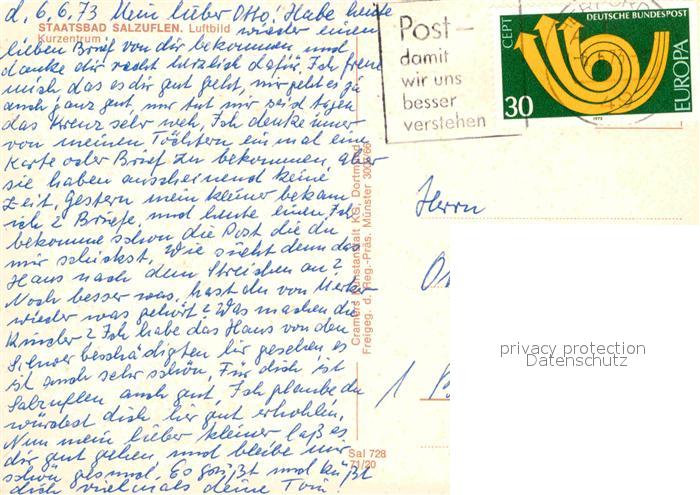 d. 6. 6. 73 Mein lieber Otto! Habe heute
STAATSBAD SALZUFLEN. Luftbild
Kurzentrum
wieder einen
lieben Brief von dir bekommen und
danke dir recht herzlich dafür. Ich freue
mich das es dir gut geht, mir geht es ja
auch ganz gut, nur tut mir seid tagen
das Kreuz sehr weh, Ich denke immer
von meinen Töchtern einmal eine
Karte oder Brief zu bekommen, aber
sie haben anscheinend keine
Zeit. Gestern mein kleiner bekam
ich 2 Briefe, und heute einen, Ich
bekomme schon die Post die du
mir schickst. Wie sieht denn das
Haus nach dem Streichen an?
Noch besser was, hast du von
wieder was gehört? Was machen die
Kinder? Ich habe das Haus von den
beschädigten hir gesehen es
ist auch sehr schön, Für dich ist
Salzuflen auch gut, Ich glaube du
würdest dich hir gut erhohlen,
Nun mein lieber kleiner laß es
dir gut gehen und bleibe mir
schön gesund. Es grüßt und küßt
dich vielmals deine Toni!
Cramers Kunstanstalt KG, Dortmund
Freigeg. d. Reg.-Präs. Münster
Sal 728
71/20
Post-
damit
wir uns
besser
verstehen
DEUTSCHE BUNDESPOST
CEPT
EUROPA
30
1973
Herrn
privacy protection
Datenschutz